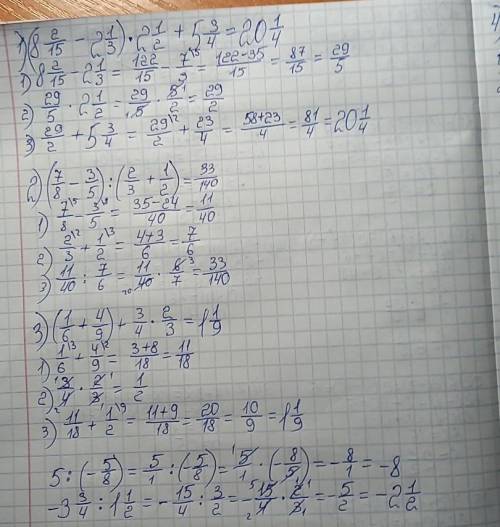 1) (8 2/15 - 2 1/3) · 2 1/2 + 5 3/4 = 20 1/4
1) 8 2/15 - 2 1/3 = 122/15 - 7\5/3 = 122-35/15 = 87/15 = 29/5
2) 29/5 · 2 1/2 = 29/5 · 5/2 = 29/2
3) 29/2 + 5 3/4 = 29\2/2 + 23/4 = 58+23/4 = 81/4 = 20 1/4
2) (7/8 - 3/5) : (2/3 + 1/2) = 33/140
1) 7\5/8 - 3\8/5 = 35-24/40 = 11/40
2) 2\2/3 + 1\3/2 = 4+3/6 = 7/6
3) 11/40 : 7/6 = 11/40 20 · 6 3/7 = 33/140
3) (1/6 + 4/9) + 3/4 · 2/3 = 1 1/9
1) 1\3/6 + 4\2/9 = 3+8/18 = 11/18
2) 1 3/4 2 · 2 1/3 1 = 1/2
3) 11/18 + 1\9/2 = 11+9/18 = 20/18 = 10/9 = 1 1/9
5 : (-5/8) = 5/1 : (-5/8) = 1 5/1 · (-8/5) = -8/1 = -8
-3 3/4 : 1 1/2 = -15/4 : 3/2 = -15 5/4 2 · 2 1/3 1 = -5/2 = -2 1/2